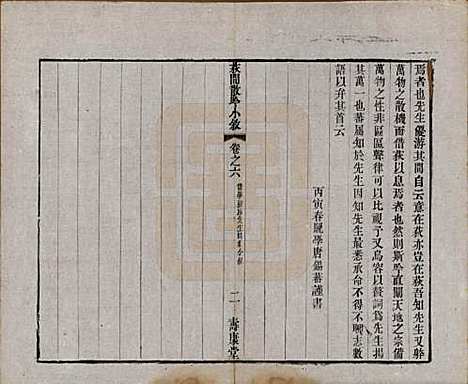 焉者也先生優游其間自云意在荻亦豈在荻吾知先生又躰
萬物之散機而借荻以息焉者也然則斯吟直關天地之宗備
萬物之性非區區聲律可以比視予又烏容以贅詞爲先生揚
其萬一也蕃屬知於先生因知先生最悉承命不得不陳志數
語以弁其首云
丙寅春眷學唐錫蕃謹書
荻間散吟小敘
卷之六
二
壽康堂